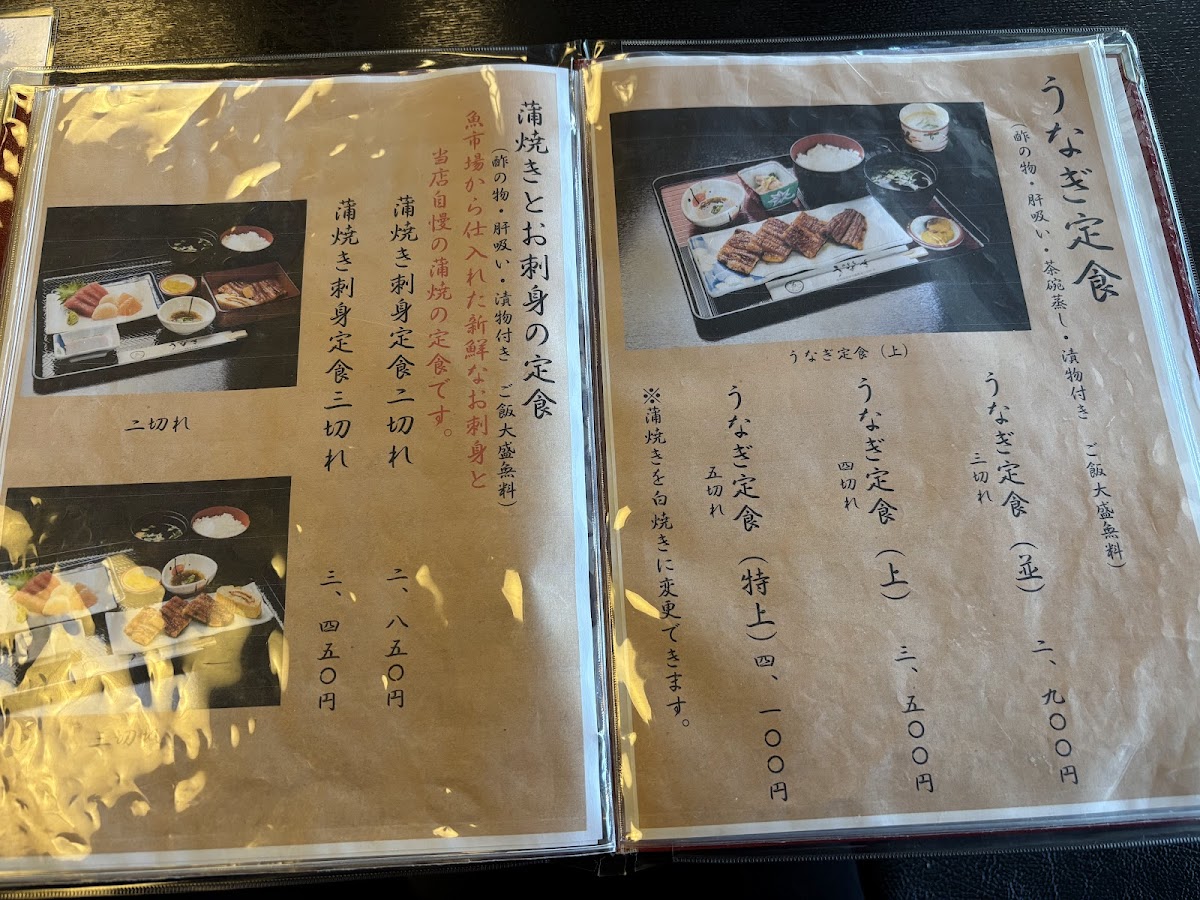 うなぎ定食
(酢の物・肝吸い・茶碗蒸し・漬物付き ご飯大盛無料)
うなぎ定食(並) 二、九〇〇円
三切れ
うなぎ定食(上) 三、五〇〇円
四切れ
うなぎ定食(特上) 四、一〇〇円
五切れ
※蒲焼きを白焼きに変更できます。
うなぎ定食(上)
蒲焼きとお刺身の定食
(酢の物・肝吸い・漬物付き ご飯大盛無料)
魚市場から仕入れた新鮮なお刺身と
当店自慢の蒲焼の定食です。
蒲焼き刺身定食二切れ 二、八五〇円
蒲焼き刺身定食三切れ 三、四五〇円
二切れ
三切れ